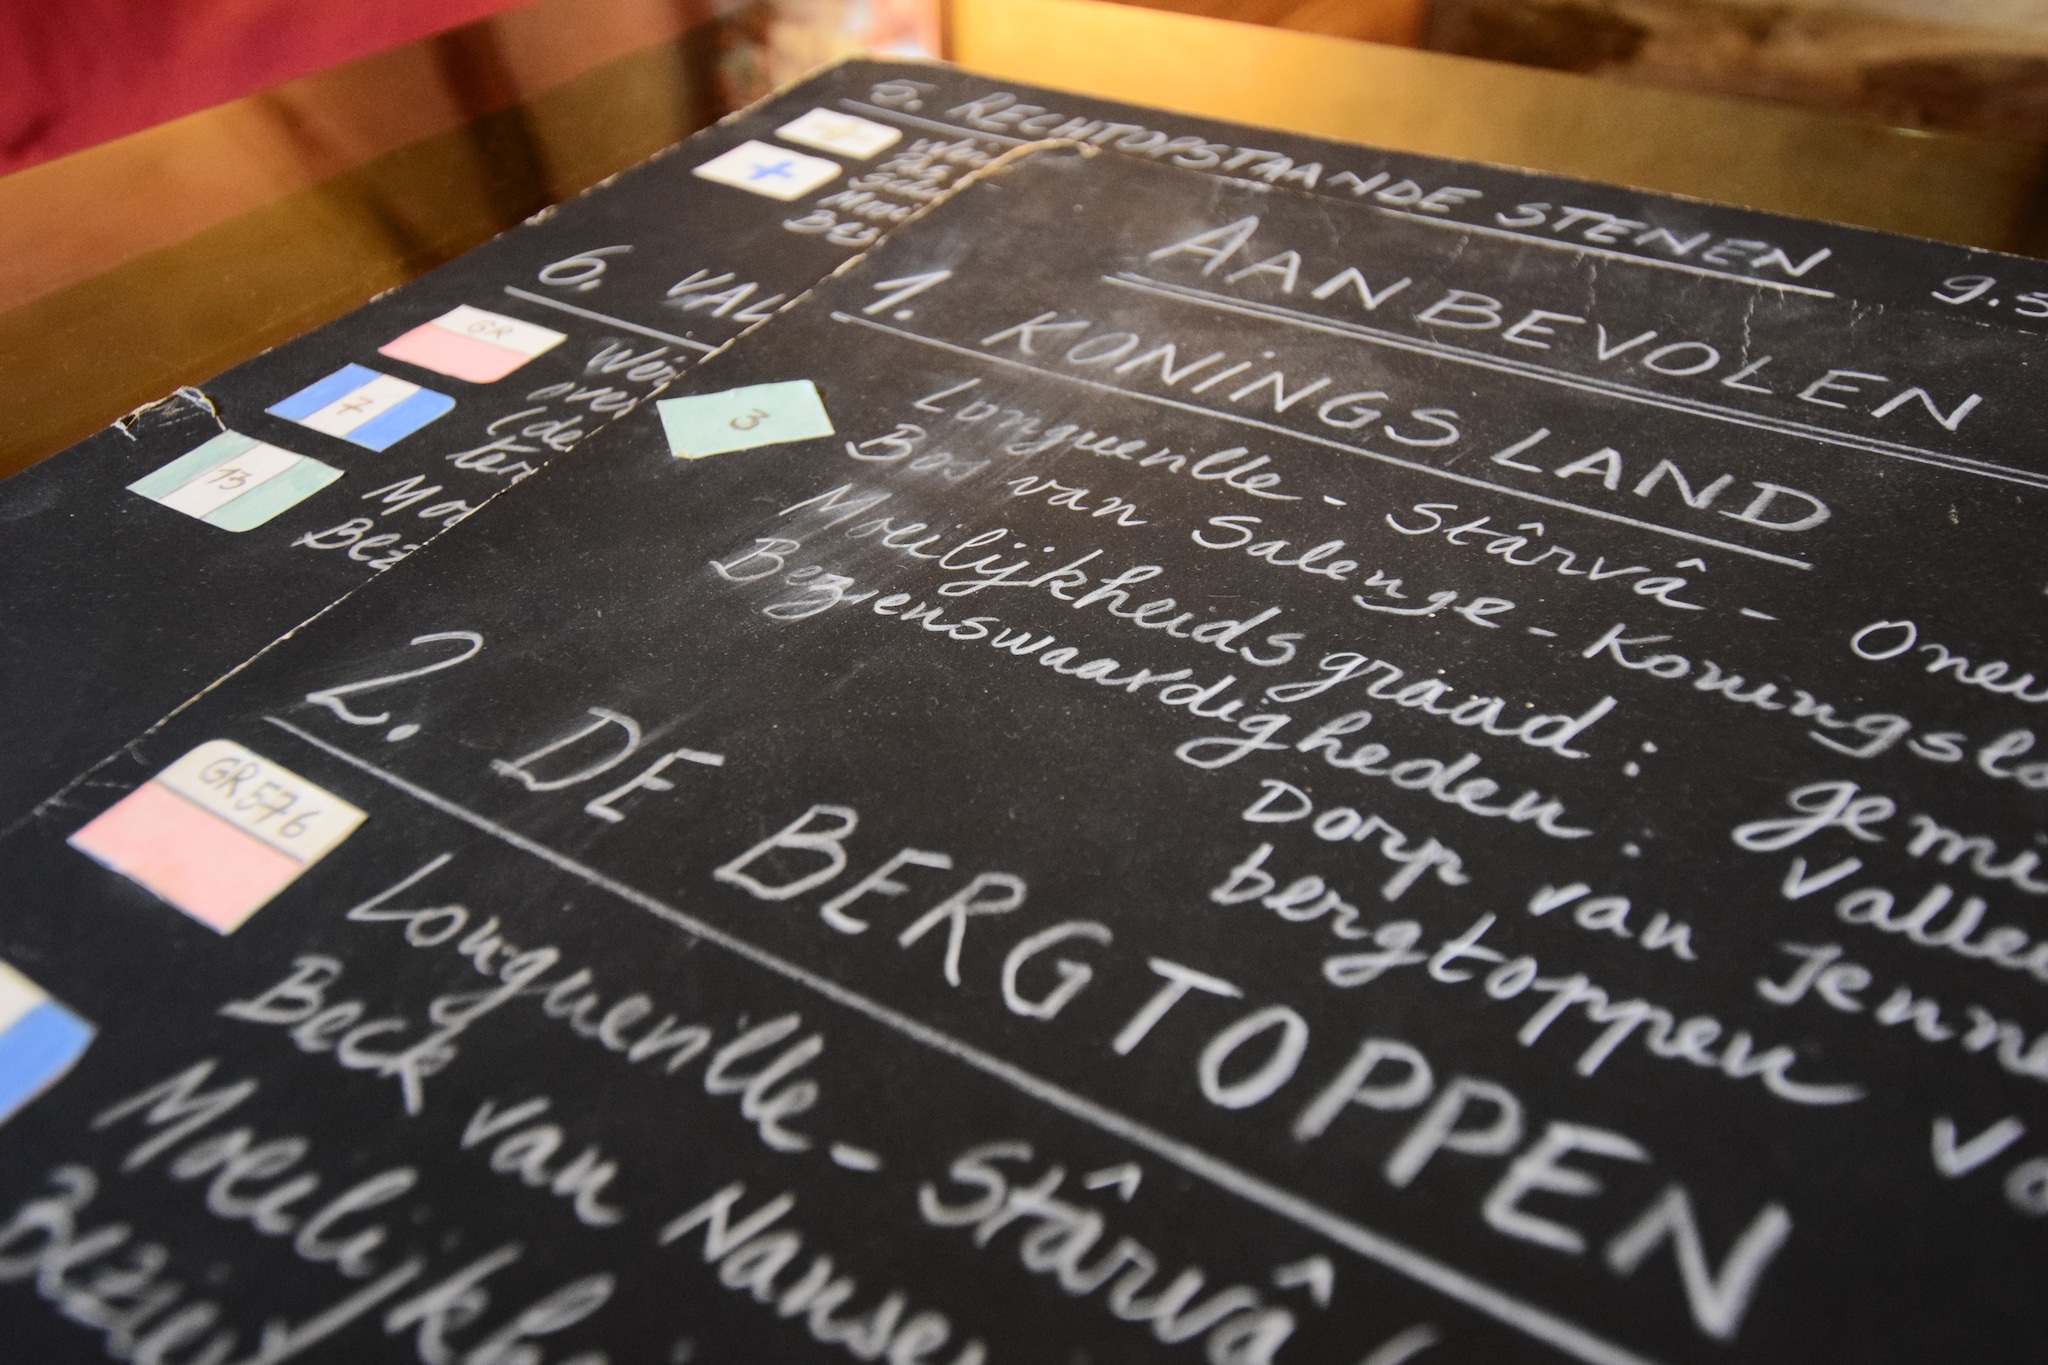 5. RECHTOPSTAANDE STENEN
6. VAL
GR
7
13
Mo
Bez
AANBEVOLEN
1. KONINGSLAND
3
Longueville - Stârvâ - Oneu
Bos van Salenge - Koningslo
Moeilijkheidsgraad : gemi
Bezienswaardigheden : Vallei
Dorp van Jenne
bergtoppen vo
2. DE BERGTOPPEN
GR576
Longueville - Stârvâ
Beek van Nanse
Moeilijkhe
Bezie